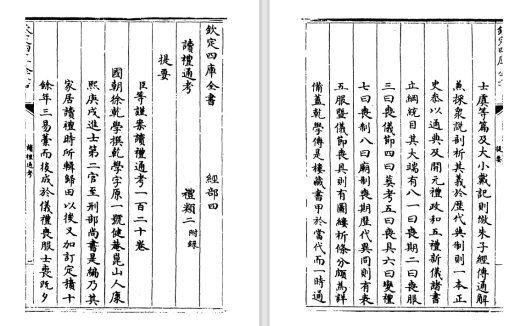 欽定四庫全書 經部四
讀禮通考 禮類二附錄
提要
臣等謹案讀禮通考一百二十卷
國朝徐乾學撰乾學字原一號健菴崑山人康
熙庚戌進士第二官至刑部尚書是編乃其
家居讀禮時所輯歸田以後又加訂定積十
餘年三易藁而後成於儀禮喪服士喪既夕
讀禮通考
欽定四庫
提要
士虞等篇及大小戴記則倣朱子經傳通解
兼採衆說剖析其義於歷代典制則一本正
史叅以通典及開元禮政和五禮新儀諸書
立綱統目其大端有八一曰喪期二曰喪服
三曰喪儀節四曰葬考五曰喪具六曰變禮
七曰喪制八曰廟制喪期歷代異同則有表
五服暨儀節喪具則有圖縷析條分頗為詳
備蓋乾學傳是樓藏書甲於當代而一時通